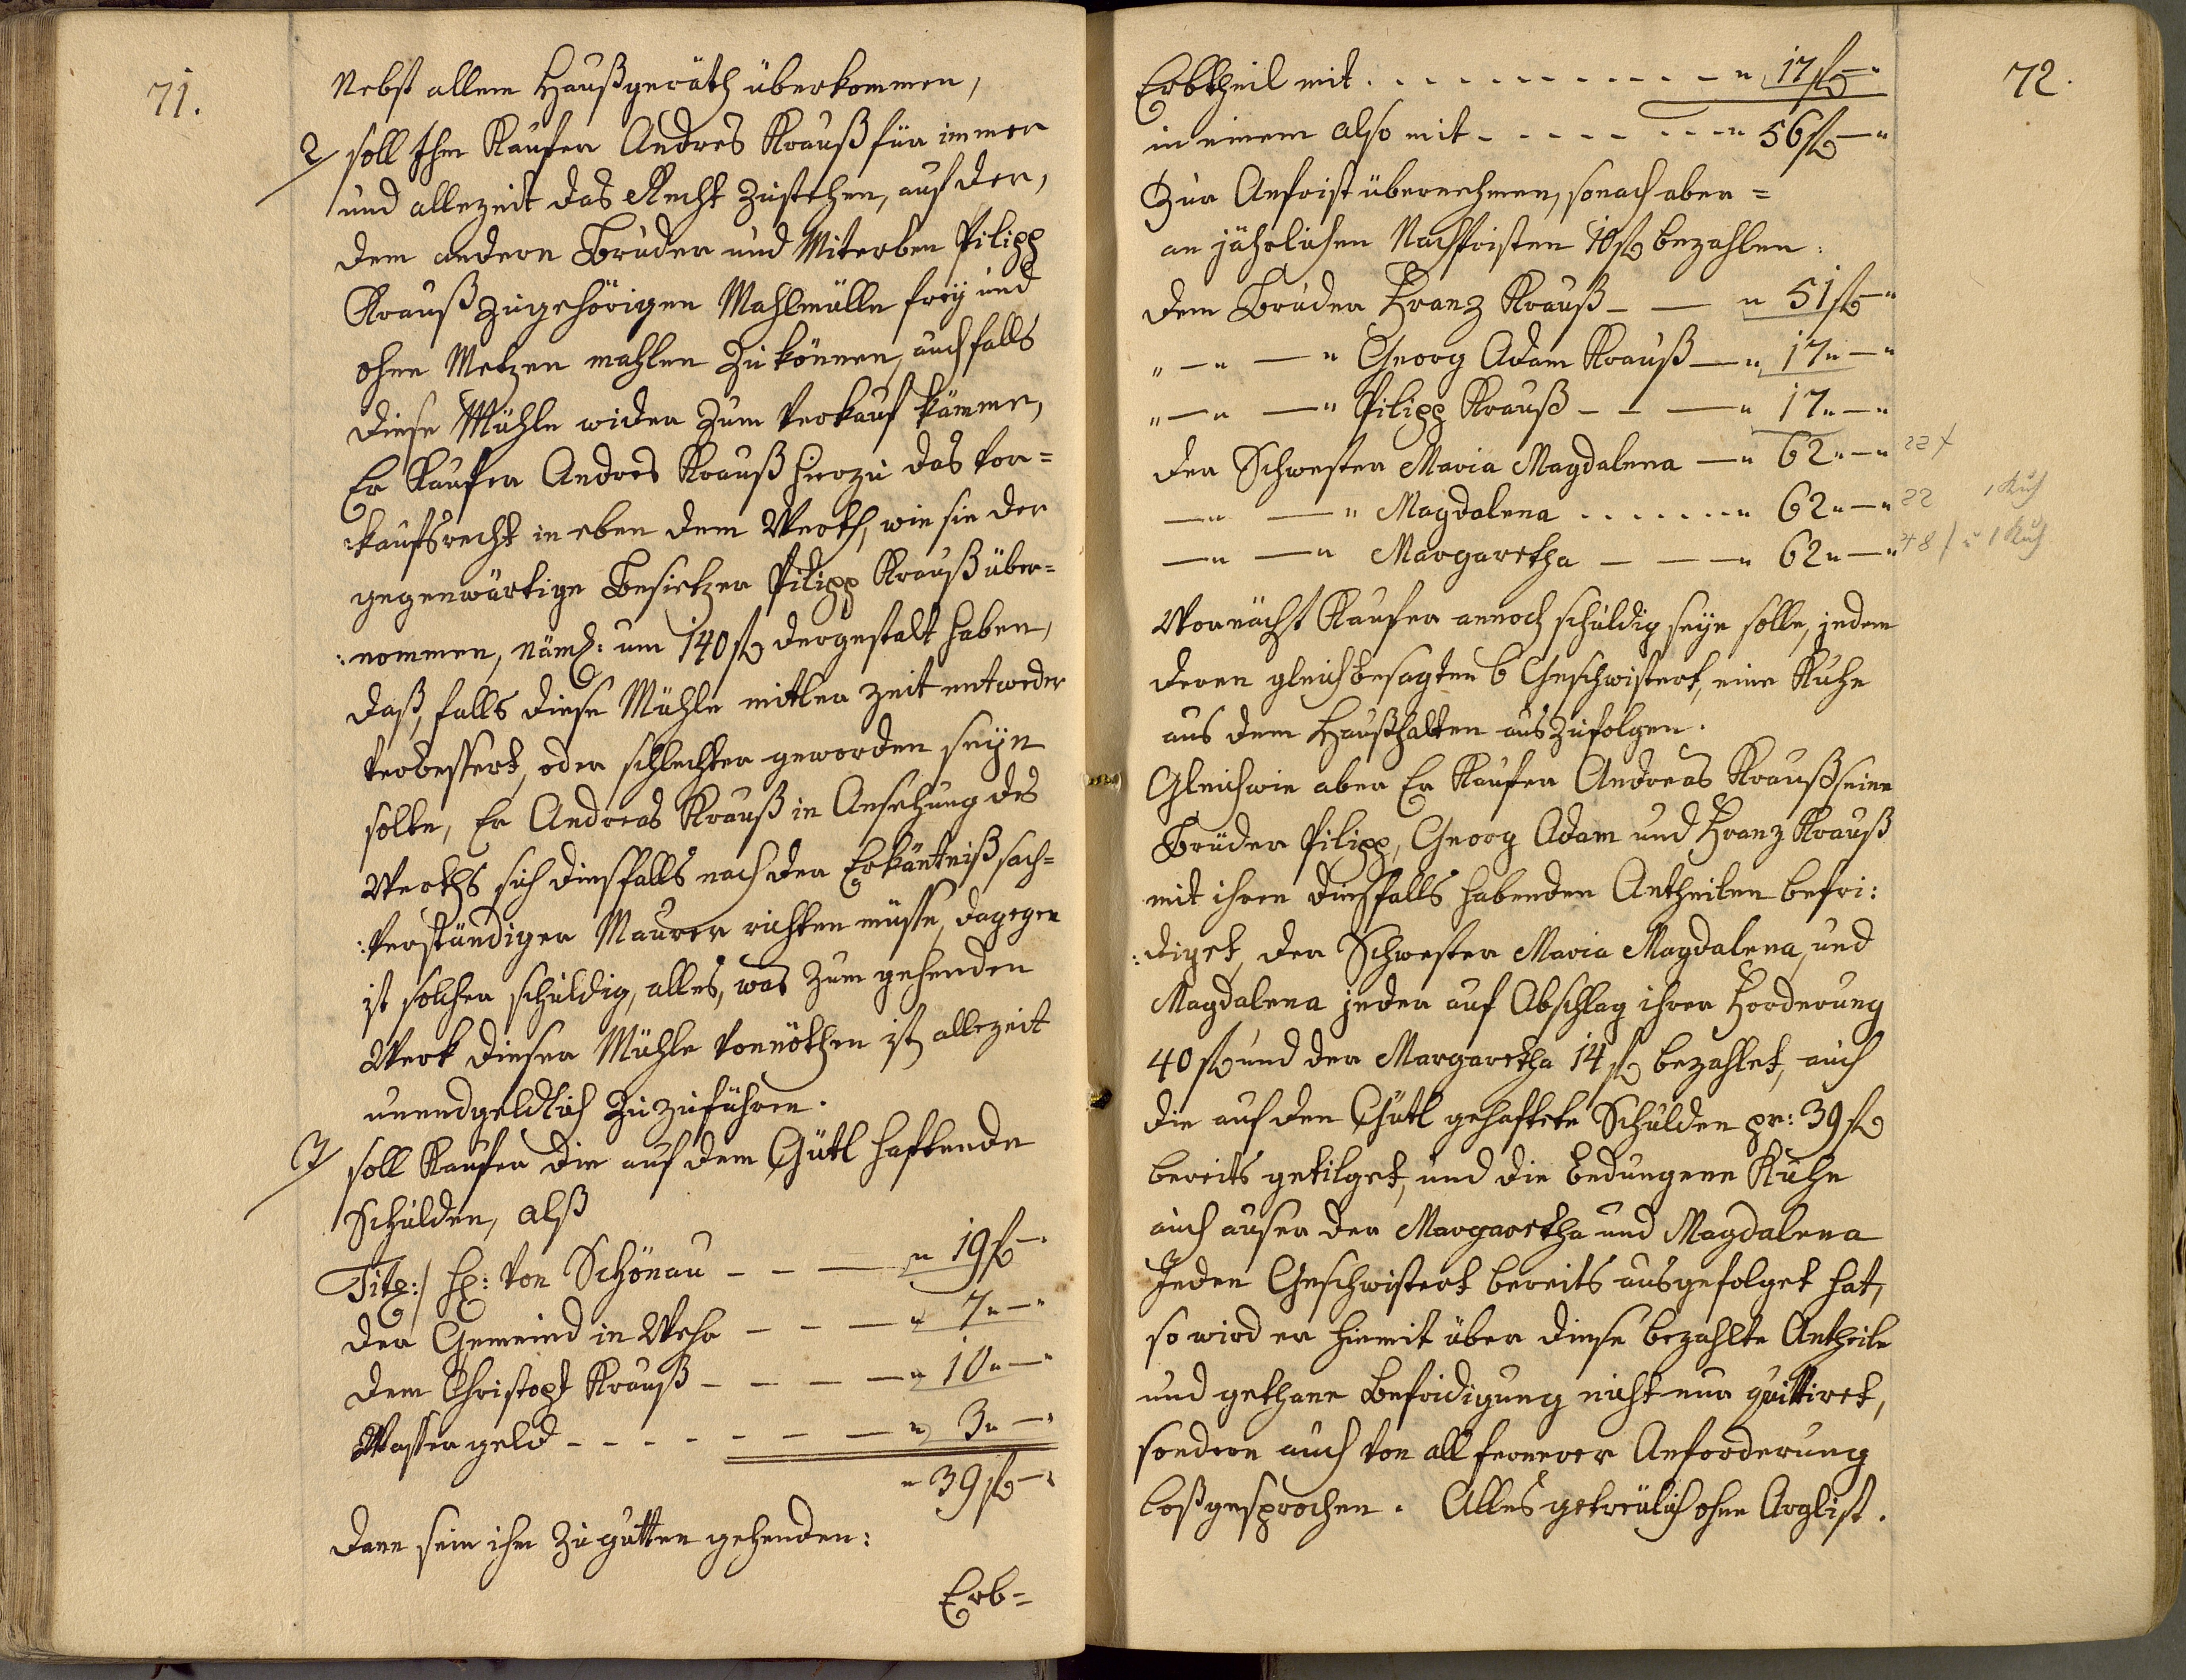 71.
Nebst allem Haußgeräth überkommen,
2/ soll Ihm Käufer Andres Krauß für immer
und allezeit das Recht zustehen, auf der,
dem andern Bruder und Miterben Pilipp
Krauß zugehörigen Mahlmülle frey und
ohne Metzen mahlen zu können, auch falls
diese Mühle wider zum Verkauf kämme,
Er Kaufer Andres Krauß hierzu das Vor=
:kaufsrecht in eben dem Werth, wie sie der
gegenwärtige Besietzer Pilipp Krauß über=
:nommen, näml: um 140 fl dergestalt haben,
daß, falls diese Mühle mitler Zeit entweder
verbessert, oder schlechter geworden seyn
solte, Er Andreas Krauß in Ansehung des
Werths sich diesfalls nach der Erkäntniß sach=
:verständiger Maurer richten müsse, dagegen
ist solcher schuldig, alles, was zum gehenden
Werk dieser Mühle vonnöthen ist, allezeit
unendgeldlich zuzuführen.
3/ soll Kaufer die auf dem Gütl haftende
Schulden, alß
Titl:/ H: von Schönau - - — " 19 fl — "
der Gemeind in Wehr - - — " 7 " — "
dem Christoph Krauß - - - — " 10 " — "
Wasser geld - - - - - - — " 3 " — "
" 39 fl — "
dann sein ihm zu gutten gehenden:
Erb=
72.
Erbtheil mit . . . . . . . . . . - " 17 fl — "
in einem also mit - - - - - - - " 56 fl — "
Zur Anfrist übernehmen, sonach aber =
an jährlichen Nachfristen 10 fl bezahlen:
dem Bruder Franz Krauß - — " 51 fl — "
" — " — " Georg Adam Krauß — " 17 " — "
" — " — " Pilipp Krauß - - — " 17 " — "
der Schwester Maria Magdalena — " 62 " — " 22 f
— " — " Magdalena . . . . . . . " 62 " — " 22 1 Kuh
— " — " Margaretha — — " 62 " — " 48 f u 1 Kuh
Wornächst Kaufer annoch schuldig seye solle, jedem
deren gleichbesagten 6 Geschwistert, eine Kuhe
aus dem Haußhalten auszufolgen.
Gleichwie aber Er Kaufer Andreas Krauß seine
Brüder Pilipp, Georg Adam und Franz Krauß
mit ihren diesfalls habenden Antheilen befri:
:diget, der Schwester Maria Magdalena, und
Magdalena jeder auf Abschlag ihrer Forderung
40 fl und der Margaretha 14 fl bezahlet, auch
die auf den Gütl gehaftete Schulden pr: 39 fl
bereits getilget, und die bedungene Kühe
auch auser der Margaretha und Magdalena
Jeden Geschwistert bereits ausgefolget hat,
so wird er hiemit über diese bezahlte Antheile
und gethane Befridigung nicht nur quittiret,
sondern auch von all fernerer Anforderung
loßgesprochen. Alles getreülich ohne Arglist.